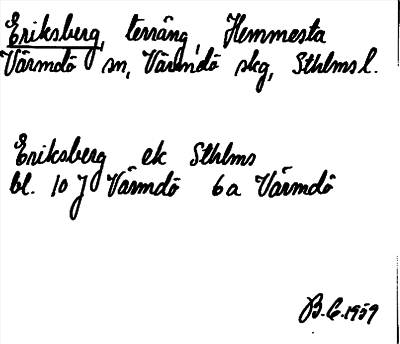 Eriksberg, terräng, Hemmesta
Värmdö sn, Värmdö skg, Sthlms l.
Eriksberg ek Sthlms
bl. 10 J Värmdö 6a Värmdö
B.G. 1959